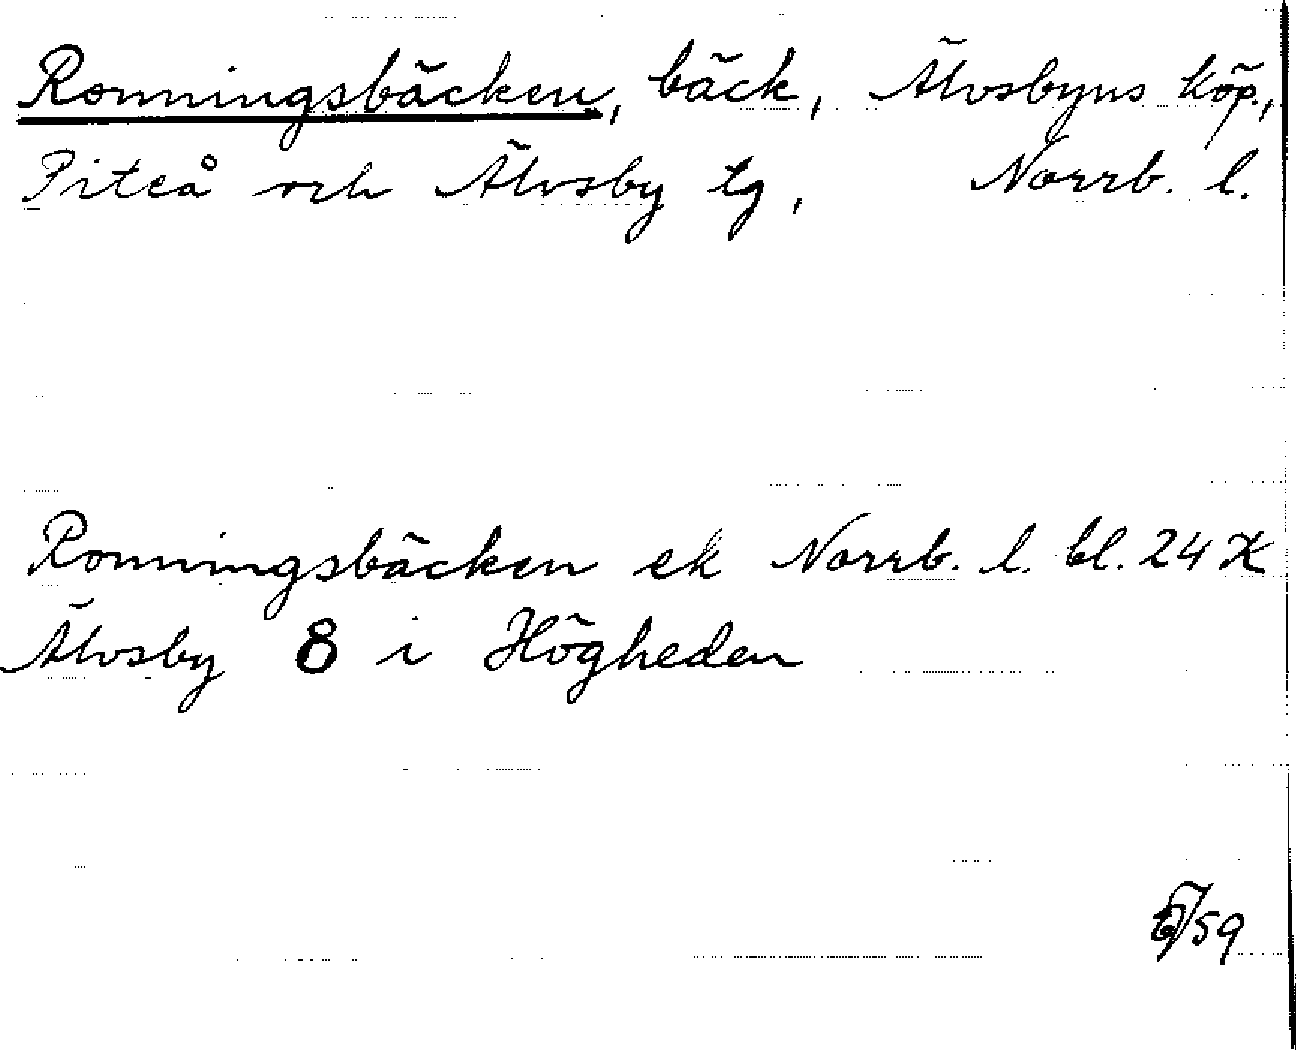 Ronningsbäcken, bäck, Älvsbyns köp.,
Piteå och Älvsby tg, Norrb. l.
Ronningsbäcken ek Norrb. l. bl. 24 X
Älvsby 8 i Högheden
/59